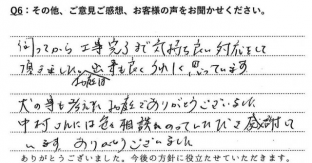 Q6：その他、ご意見ご感想、お客様の声をお聞かせください。
伺ってから工事完了まで気持ち良い対応をして
頂きました。仕事も良くうれしく思っています
犬の事も考えれ お庭でありがとうございました
中村さんには色々相談にのっていただき感謝して
います ありがとうございました
ありがとうございました。今後の方針に役立たせていただきます。